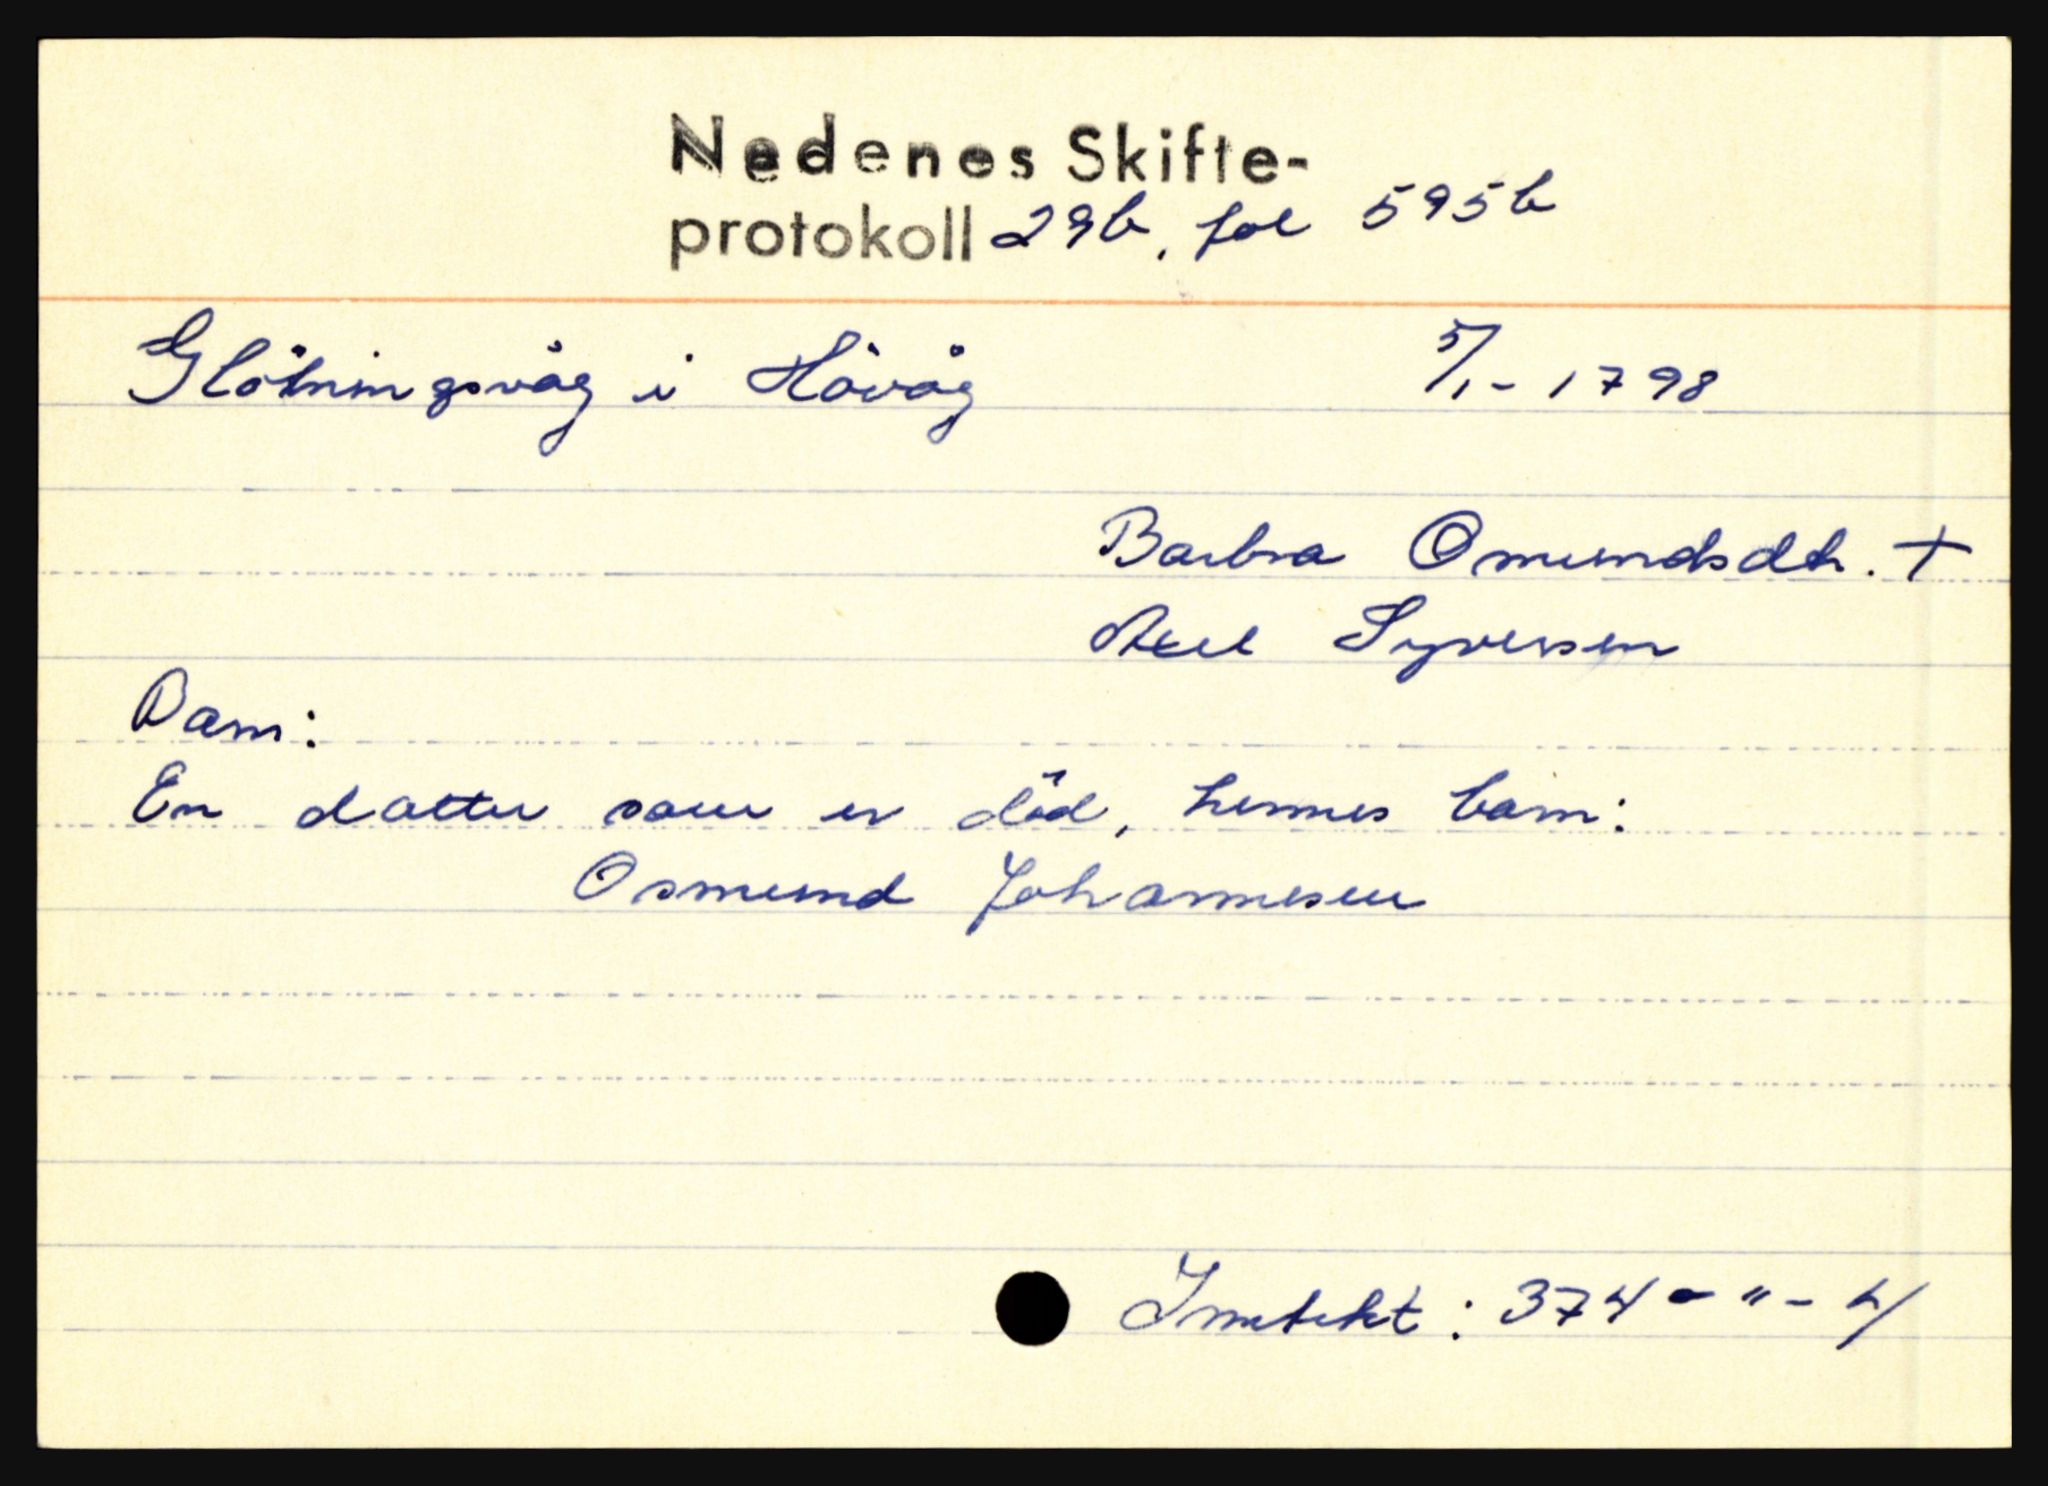 Nedenes Skifte-
protokoll 29b, fol 595b
Glötningsvåg i Høvåg 5/1-1798
Barbra Omundsdtr. +
Axel Syversen
Barn:
En datter som er död, hennes barn:
Osmund Johannesen
Inntekt: 374 - " - 4